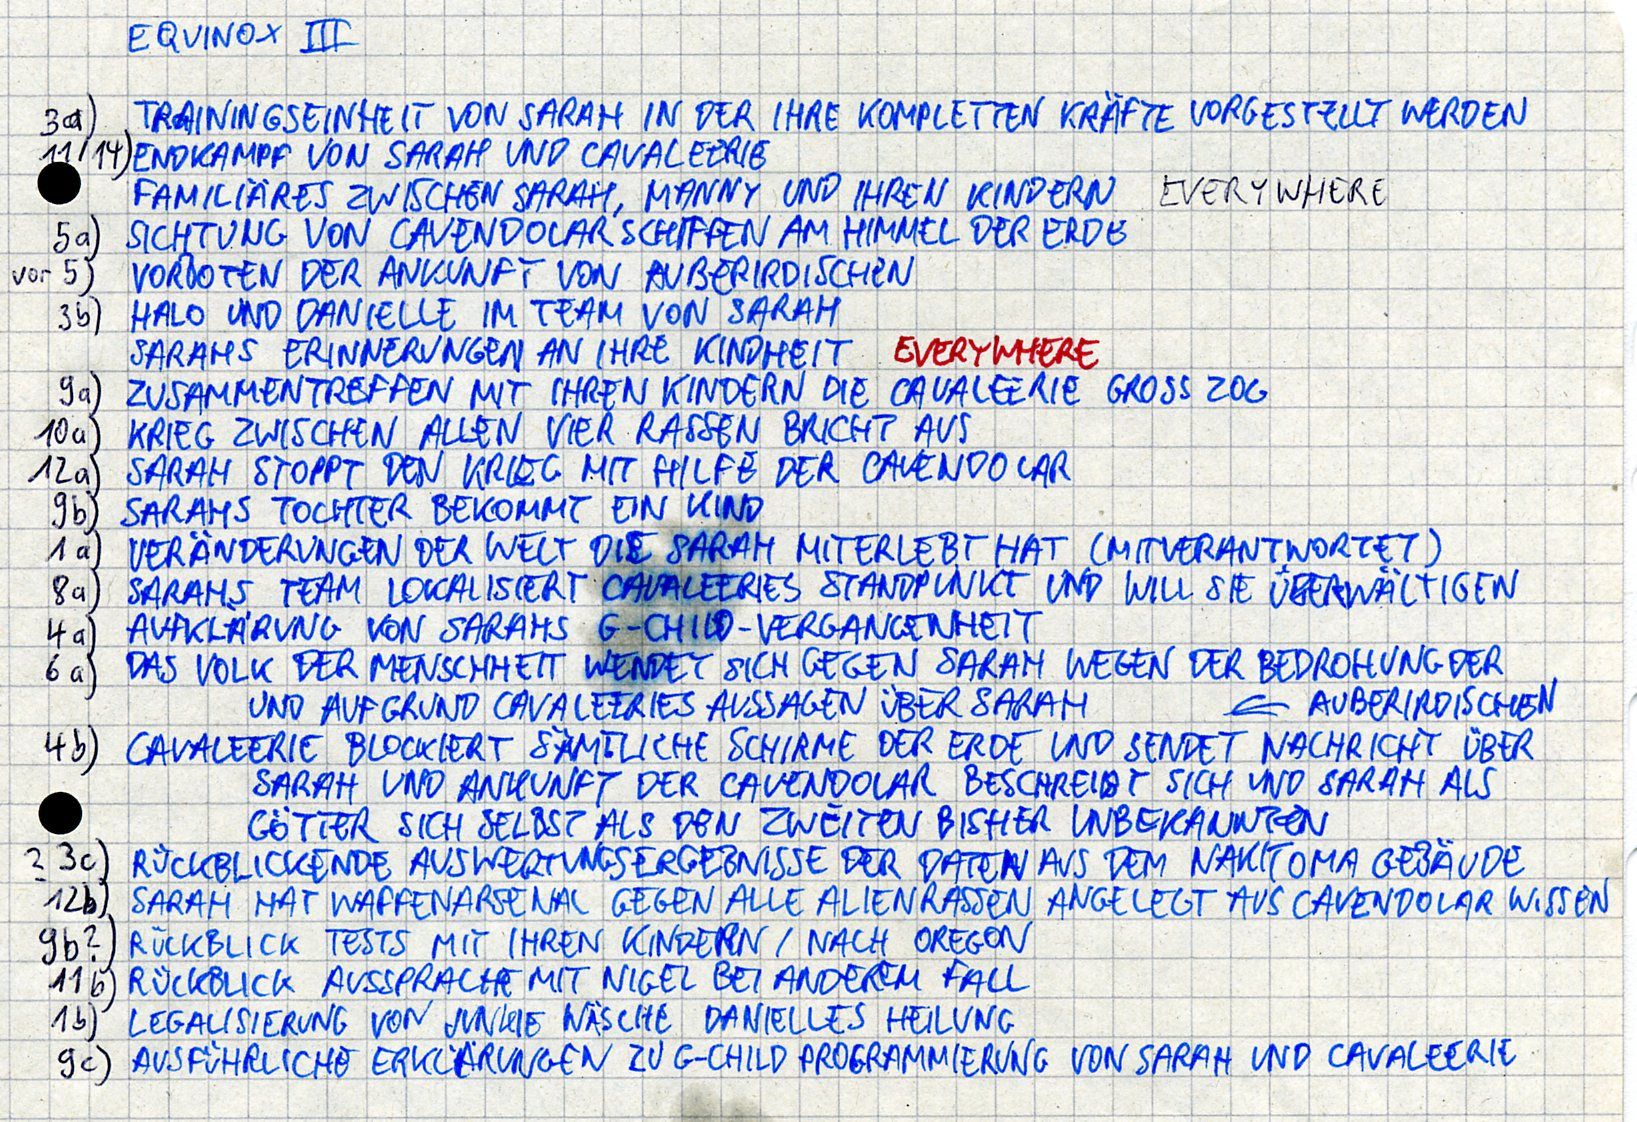 EQUINOX III
3a) TRAININGSEINHEIT VON SARAH IN DER IHRE KOMPLETTEN KRÄFTE VORGESTELLT WERDEN
11/14) ENDKAMPF VON SARAH UND CAVALEERIE
FAMILIÄRES ZWISCHEN SARAH, MANNY UND IHREN KINDERN EVERYWHERE
5a) SICHTUNG VON CAVENDOLAR SCHIFFEN AM HIMMEL DER ERDE
vor 5) VORBOTEN DER ANKUNFT VON AUßERIRDISCHEN
3b) HALO UND DANIELLE IM TEAM VON SARAH
SARAHS ERINNERUNGEN AN IHRE KINDHEIT EVERYWHERE
9a) ZUSAMMENTREFFEN MIT IHREN KINDERN DIE CAVALEERIE GROSS ZOG
10a) KRIEG ZWISCHEN ALLEN VIER RASSEN BRICHT AUS
12a) SARAH STOPPT DEN KRIEG MIT HILFE DER CAVENDOLAR
9b) SARAHS TOCHTER BEKOMMT EIN KIND
1a) VERÄNDERUNGEN DER WELT DIE SARAH MITERLEBT HAT (MITVERANTWORTET)
8a) SARAHS TEAM LOKALISIERT CAVALEERIES STANDPUNKT UND WILL SIE ÜBERWÄLTIGEN
4a) AUFKLÄRUNG VON SARAHS G-CHILD-VERGANGENHEIT
6a) DAS VOLK DER MENSCHHEIT WENDET SICH GEGEN SARAH WEGEN DER BEDROHUNG DER
UND AUFGRUND CAVALEERIES AUSSAGEN ÜBER SARAH ← AUßERIRDISCHEN
4b) CAVALEERIE BLOCKIERT SÄMTLICHE SCHIRME DER ERDE UND SENDET NACHRICHT ÜBER
SARAH UND ANKUNFT DER CAVENDOLAR BESCHREIBT SICH UND SARAH ALS
GÖTTER SICH SELBST ALS DEN ZWEITEN BISHER UNBEKANNTEN
? 3c) RÜCKBLICKENDE AUSWERTUNGSERGEBNISSE DER DATEN AUS DEM NAKITOMA GEBÄUDE
12b) SARAH HAT WAFFENARSENAL GEGEN ALLE ALIENRASSEN ANGELEGT AUS CAVENDOLAR WISSEN
9b?) RÜCKBLICK TESTS MIT IHREN KINDERN / NACH OREGON
11b) RÜCKBLICK AUSSPRACHE MIT NIGEL BEI ANDEREM FALL
1b) LEGALISIERUNG VON JUNKIE WÄSCHE DANIELLES HEILUNG
9c) AUSFÜHRLICHE ERKLÄRUNGEN ZU G-CHILD PROGRAMMIERUNG VON SARAH UND CAVALEERIE